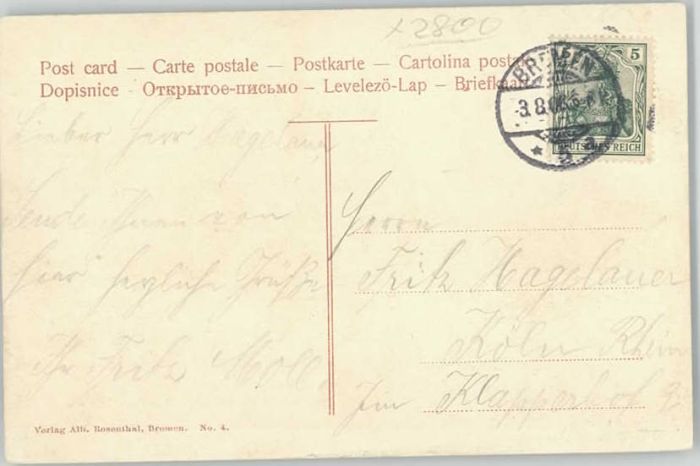 x 2800
Post card — Carte postale — Postkarte — Cartolina
Dopisnice - Открытое-письмо — Levelező-Lap — Briefkaa
5
BREMEN
3.8.
5
DEUTSCHES REICH
Lieber Herr Hagelauer
Sende Ihnen von
hier herzliche Grüße
Ihr Fritz Moll
Herrn
Fritz Hagelauer
Köln Rhein
Im Klapperhof
Verlag Alb. Rosenthal, Bremen. No. 4.